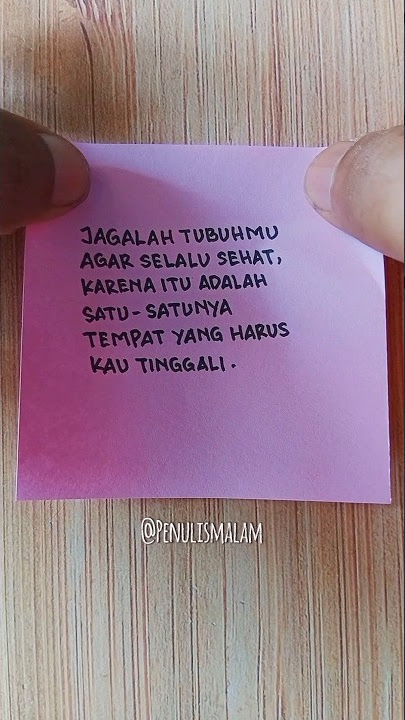 JAGALAH TUBUHMU
AGAR SELALU SEHAT,
KARENA ITU ADALAH
SATU-SATUNYA
TEMPAT YANG HARUS
KAU TINGGALI.
@PENULISMALAM